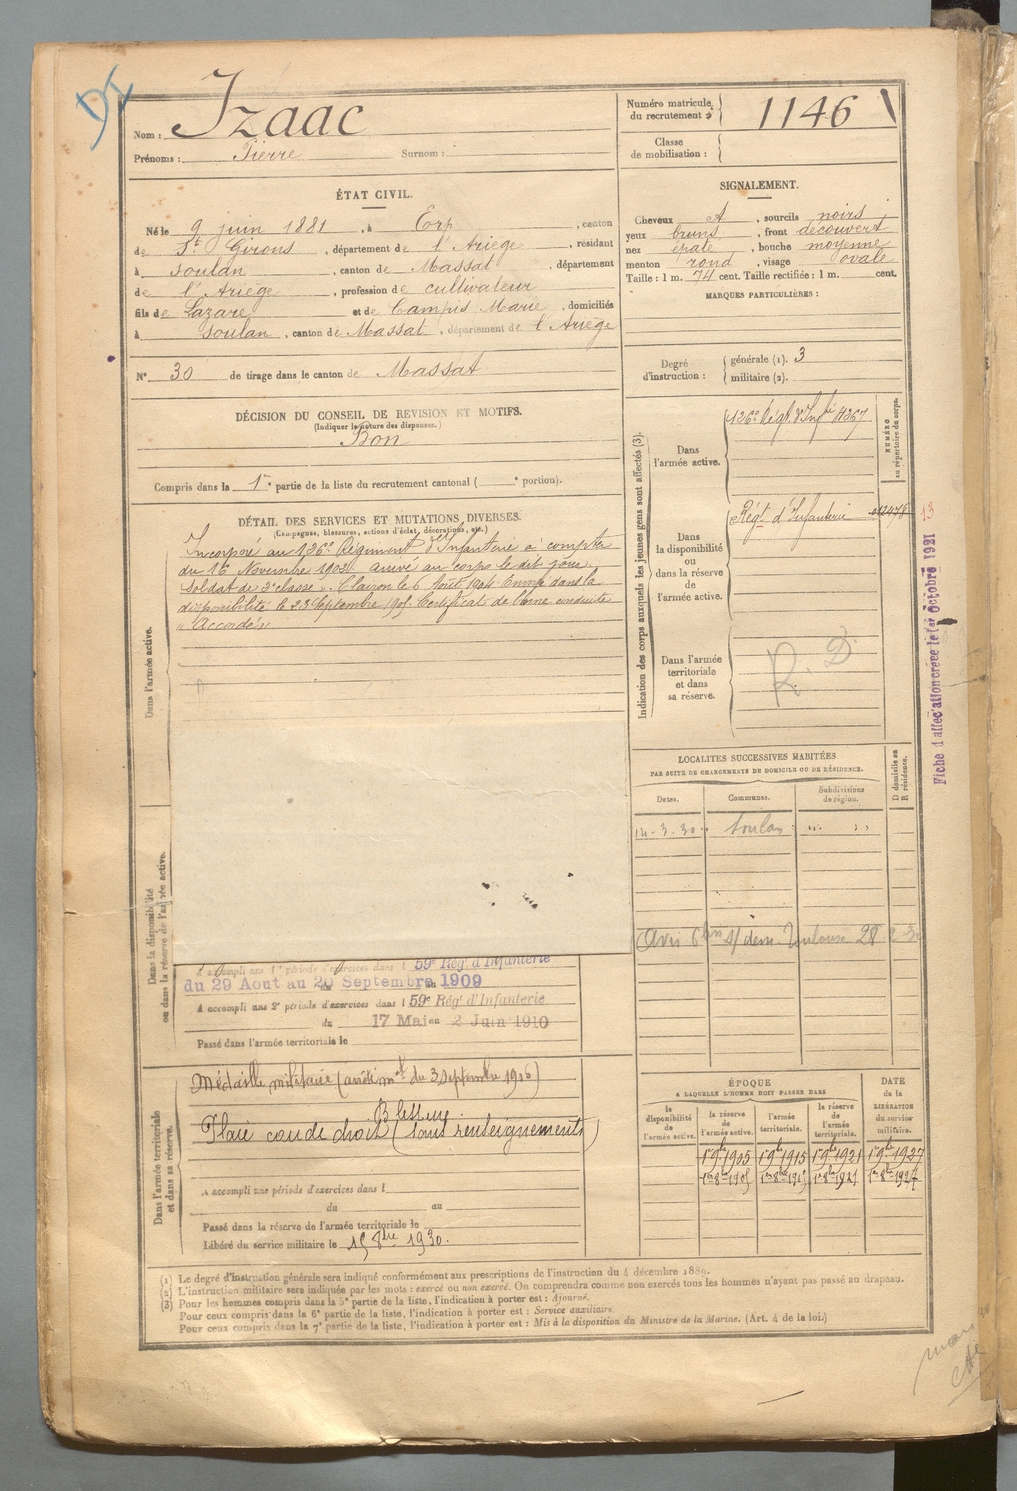 Nom : Izaac
Prénoms : Pierre Surnom :
Numéro matricule du recrutement : 1146
Classe de mobilisation :
ÉTAT CIVIL.
Né le 9 juin 1881, à Erp, canton
de St Girons, département de l'Ariège, résidant
à Soulan, canton de Massat, département
de l'Ariège, profession de cultivateur
fils de Lazare et de Campis Marie, domiciliés
à Soulan, canton de Massat, département de l'Ariège
N° 30 de tirage dans le canton de Massat
SIGNALEMENT.
Cheveux et, sourcils noirs
yeux bruns, front découvert
nez épaté, bouche moyenne
menton rond, visage ovale
Taille : 1 m. 74 cent. Taille rectifiée : 1 m. cent.
MARQUES PARTICULIÈRES :
Degré d'instruction : générale (1). 3
militaire (2).
DÉCISION DU CONSEIL DE REVISION ET MOTIFS.
(Indiquer la nature des dispenses.)
Bon
Compris dans la 1re partie de la liste du recrutement cantonal ( e portion).
DÉTAIL DES SERVICES ET MUTATIONS DIVERSES.
(Campagnes, blessures, actions d'éclat, décorations, etc.)
Incorporé au 136e Régiment d'Infanterie à compter
du 16 Novembre 1902 arrivé au corps le dit jour
soldat de 2e classe. Clairon le 6 Août 1904. Envoyé dans la
disponibilité le 23 Septembre 1905. Certificat de bonne conduite
"Accordé"
Dans l'armée active.
Dans la disponibilité ou dans la réserve de l'armée active.
A accompli une 1re période d'exercices dans l 59e Rég. d'Infanterie
du 29 Aout au 20 Septembre 1909
A accompli une 2e période d'exercices dans l 59e Régt d'Infanterie
du 17 Mai au 2 Juin 1910
Passé dans l'armée territoriale le
Dans l'armée territoriale et dans sa réserve.
Médaille militaire (arrêté mel du 3 septembre 1916)
Blessure.
Plaie coude droit (sans renseignements)
A accompli une période d'exercices dans l
du au
Passé dans la réserve de l'armée territoriale le
Libéré du service militaire le 15 8bre 1930.
Indication des corps auxquels les jeunes gens sont affectés (3).
NUMÉRO au répertoire du corps.
Dans l'armée active.
136e Régt d'Infie 4367
Dans la disponibilité ou dans la réserve de l'armée active.
Régt d'Infanterie
Dans l'armée territoriale et dans sa réserve.
R. D.
Fiche d'affectation créée le 1er Octobre 1921
LOCALITÉS SUCCESSIVES HABITÉES
PAR SUITE DE CHANGEMENTS DE DOMICILE OU DE RÉSIDENCE.
Dates. Communes. Subdivisions de région. D domicile ou R résidence.
14-3-30 Soulan " "
ÉPOQUE
A LAQUELLE L'HOMME DOIT PASSER DANS
la disponibilité de l'armée active. la réserve de l'armée active. l'armée territoriale. la réserve de l'armée territoriale. DATE de la LIBÉRATION du service militaire.
1er 9bre 1905 1er 9bre 1915 1er 9bre 1921 1er 9bre 1927
1er 8bre 1905 1er 8bre 1915 1er 8bre 1921 1er 8bre 1927
(1) Le degré d'instruction générale sera indiqué conformément aux prescriptions de l'instruction du 4 décembre 1889.
(2) L'instruction militaire sera indiquée par les mots : exercé ou non exercé. On comprendra comme non exercés tous les hommes n'ayant pas passé au drapeau.
(3) Pour les hommes compris dans la 5e partie de la liste, l'indication à porter est : Ajourné.
Pour ceux compris dans la 6e partie de la liste, l'indication à porter est : Service auxiliaire.
Pour ceux compris dans la 7e partie de la liste, l'indication à porter est : Mis à la disposition du Ministre de la Marine. (Art. 4 de la loi.)